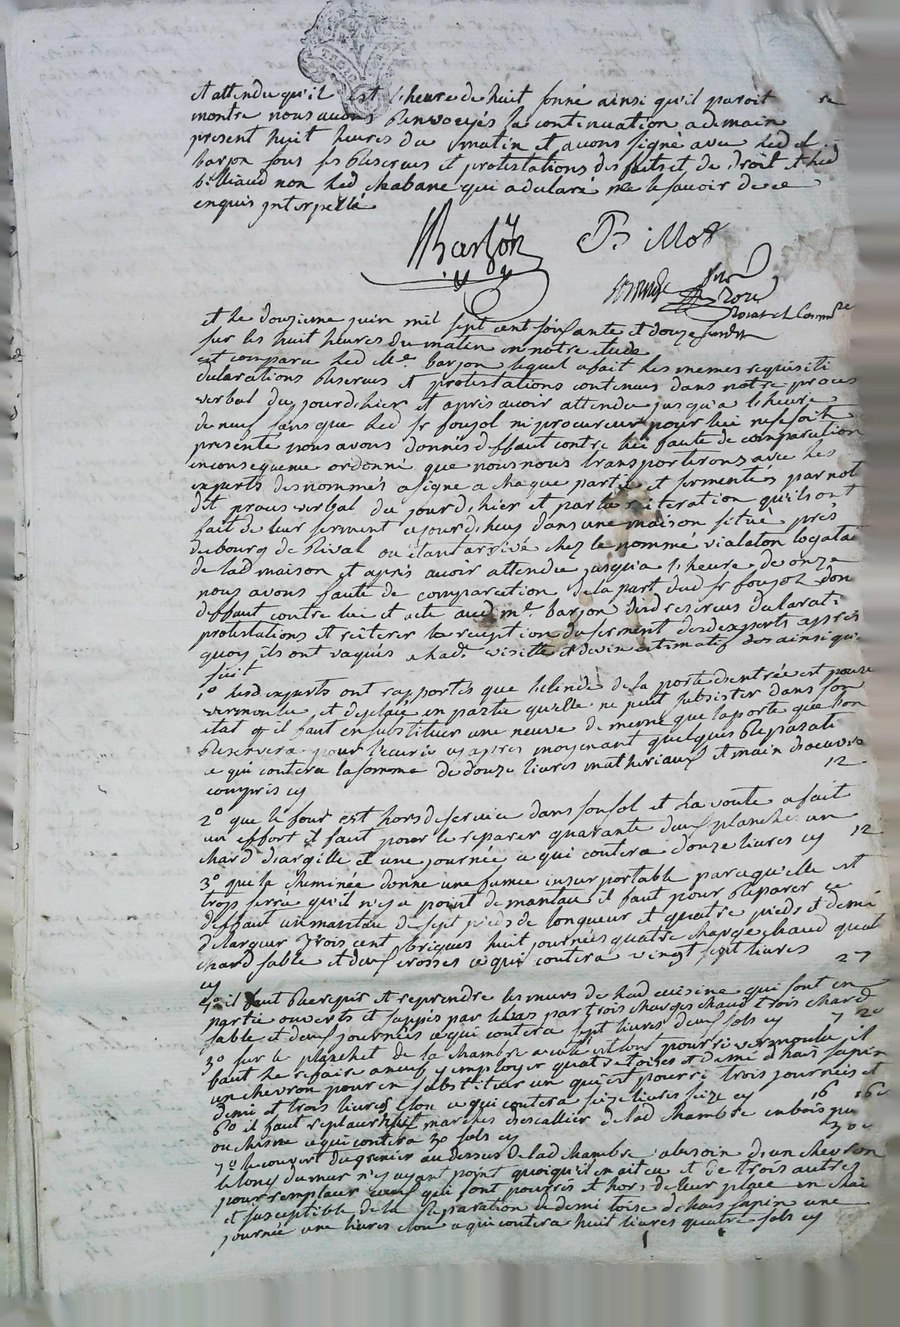 et attendu qu'il est l'heure de huit sonné ainsi qu'il paroit
montre nous avons Renvoyés la continuation a demain
present huit heures du matin et avons signé avec led
barjon sous ses Reserves et protestations des faits et de droit et led
billiaud non led chabane qui a declaré ne le savoir de ce
enquis Interpellé
Barjon Billiod
et le douzieme juin mil sept cent soissante et douze
sur les huit heures du matin en notre etude
est comparu led Me barjon lequel a fait les memes requisiti
declarations Reserves et protestations contenues dans notre proces
verbal du jourd'hier et apres avoir attendu jusqu'a l'heure
de neuf sans que led sr foujol ni procureur pour lui ne se soit
presenté nous avons donnés deffaut contre lui faute de comparution
inconsequeme ordonné que nous nous transporterons avec les
experts des nommés a signe a chaque partie et sermentés par not
dit proces verbal du jourd'hier et par la reiteration qu'ils ont
fait de leur serment ajourd'huy dans une maison situé près
du bourg de Rival ou etant arrivé chez le nommé vialaton locatai
de lad maison et après avoir attendu jusqu'a l'heure de onze
nous avons faute de comparution de la part dud sr foujol don
deffaut contre lui et acte aud Me barjon desd reserves declarati
protestations et reiterer la reception du serment desd experts apres
quoy ils ont vaqués a lad visitte et devis estimatif des ainsi qui
suit
1° lesd experts ont rapportés que de la porte d'entrée est pourie
vermoulue et en partie qu'elle ne peut subsister dans son
etat qu'il faut en substituer une neuve de meme que la porte que l'on
Reservera pour l'ecurie cy apres moyenant quelques Reparati
ce qui contera la somme de douze livres matheriaux et main d'oeuvre
compris cy 12
2° que le four est hors de service dans son sol et la voute a fait
un effort il faut pour le reparer quarante deux planches un
chard d'argille et une journée ce qui contera douze livres cy 12
3° que la cheminée donne une fumée insurportable parcequ'elle est
trop serré qu'il n'y a point de manteau il faut pour Reparer ce
deffaut un manteau de sept pieds de longueur et quatre pieds et demi
de largeur trois cent briques huit journées quatre charges chaud quat
chard sable et deux crosses ce qui contera vingt sept livres
cy 27
4° il faut Recrepir et reprendre les murs de lad cuisine qui sont en
partie ouverts et sappés par le bas par trois charges chaud trois chard
sable et deux journées ce qui contera sept livres deux sols cy 7 2
5° sur le planchet de la chambre a coté est tout pourri vermoulu il
faut le refaire a neuf y employer quatre toises et demi d'hais sapin
un chevron pour en substituer un qui est pourri trois journées et
demi et trois livres clou ce qui contera seize livres seize cy 16 16
6° il faut replacer huit marches d'escallier de lad chambre en bois pin
ou chesne ce qui contera 30 sols cy 30
7° le couvert du grenier au dessus de lad chambre a besoin d'un chevron
le long du mur n'y ayant point quoiqu'il en ait eu et de trois autres
pour remplacer ceux qui sont pourris et hors de leur place en etat
et susceptible de la Reparation de demi toise d'hais sapin une
journée une livres clou ce qui contera huit livres quatre sols cy